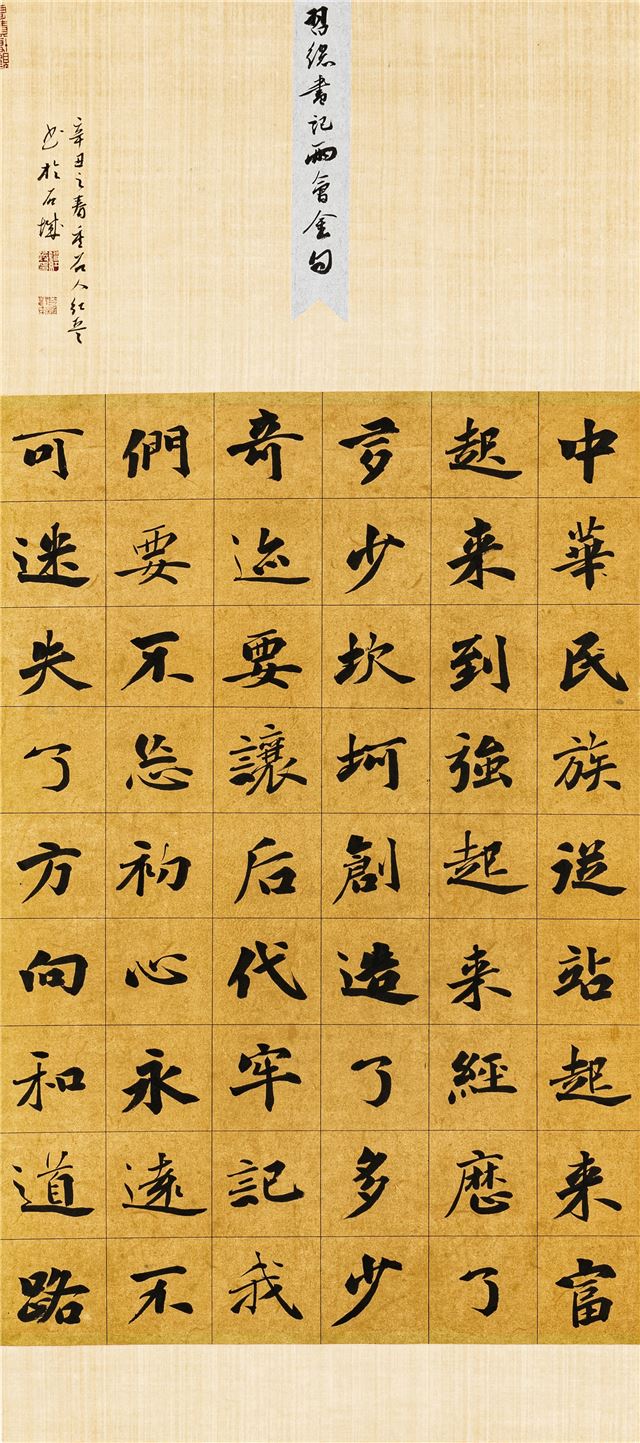 習總書記兩會金句
中華民族從站起来富
起来到強起来經歷了
多少坎坷創造了多少
奇迹要讓后代牢記我
們要不忘初心永遠不
可迷失了方向和道路
辛丑之春
書於石城